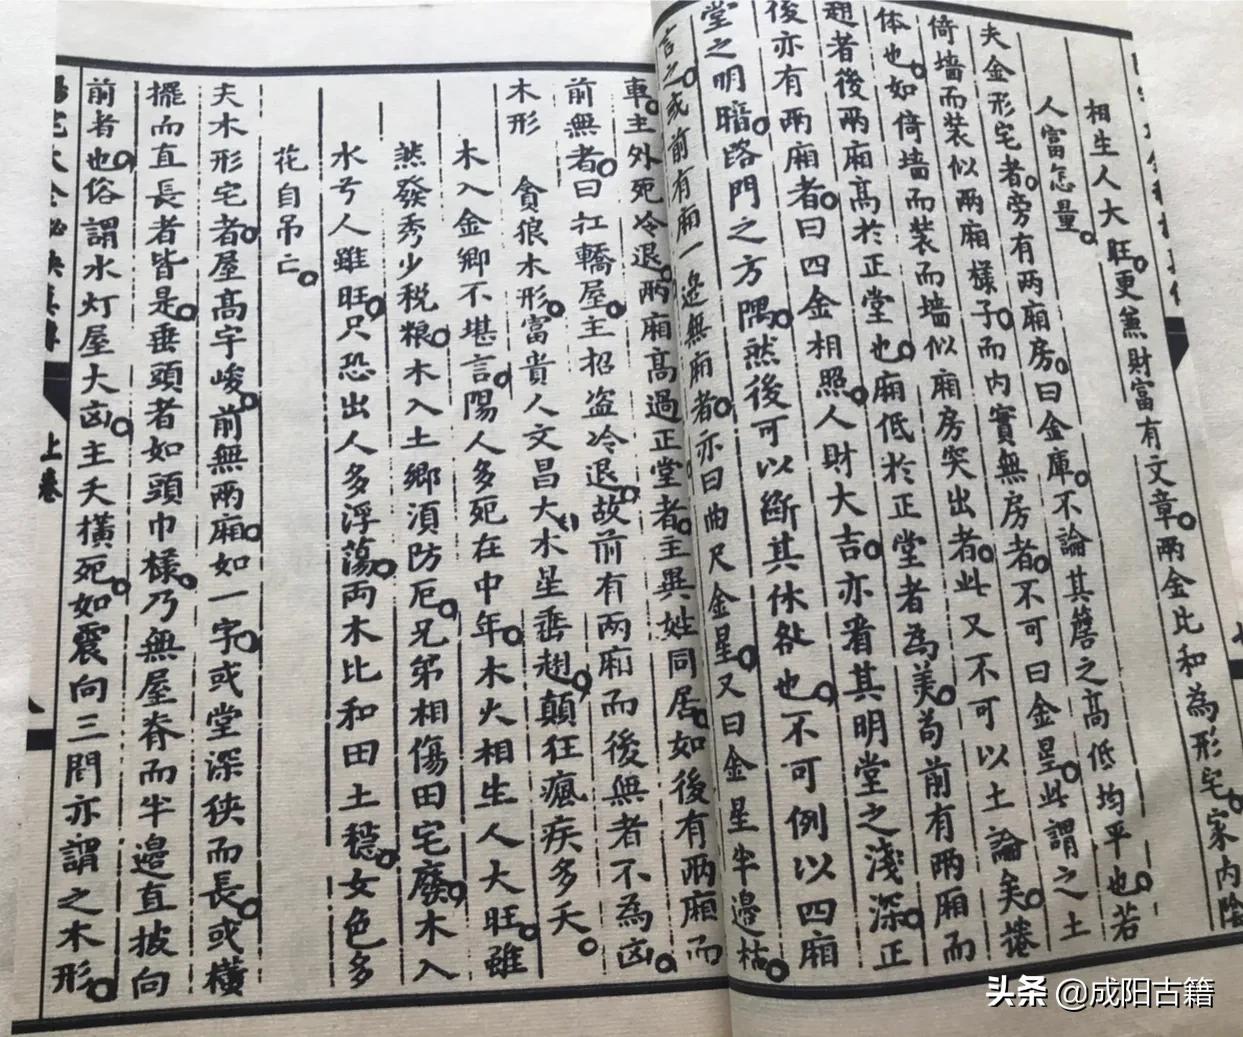 相生人大旺更兼財富有文章两金比和為形宅家内陰
人富怎量
夫金形宅者旁有两廂房曰金庫不論其簷之高低均平也若
倚墙而装似两廂樣子而内實無房者不可曰金星此謂之土
体也如倚墙而装而墙似廂房突出者此又不可以土論矣捲
翹者後两廂高於正堂也廂低於正堂者為美苟前有两廂而
後亦有两廂者曰四金相照人財大吉亦看其明堂之淺深正
堂之明暗路門之方隅然後可以斷其休咎也不可例以四廂
言之或前有廂一邊無廂者亦曰曲尺金星又曰金星半邊枯
主外死冷退两廂高過正堂者主異姓同居如後有两廂而
前無者曰扛轎屋主招盗冷退故前有两廂而後無者不為凶
木形
貪狼木形富貴人文昌大木星垂翹顛狂瘋疾多夭
木入金鄉不堪言陽人多死在中年木火相生人大旺雖
然發秀少税粮木入土鄉須防厄兄弟相傷田宅廢木入
水兮人雖旺只恐出人多浮蕩两木比和田土穩女色多
花自吊亡
夫木形宅者屋高宇峻前無两廂如一字或堂深狹而長或橫
擺而直長者皆是垂頭者如頭巾樣乃無屋脊而半邊直披向
前者也俗謂水灯屋大凶主夭橫死如震向三間亦謂之木形
上卷
头条 @成阳古籍